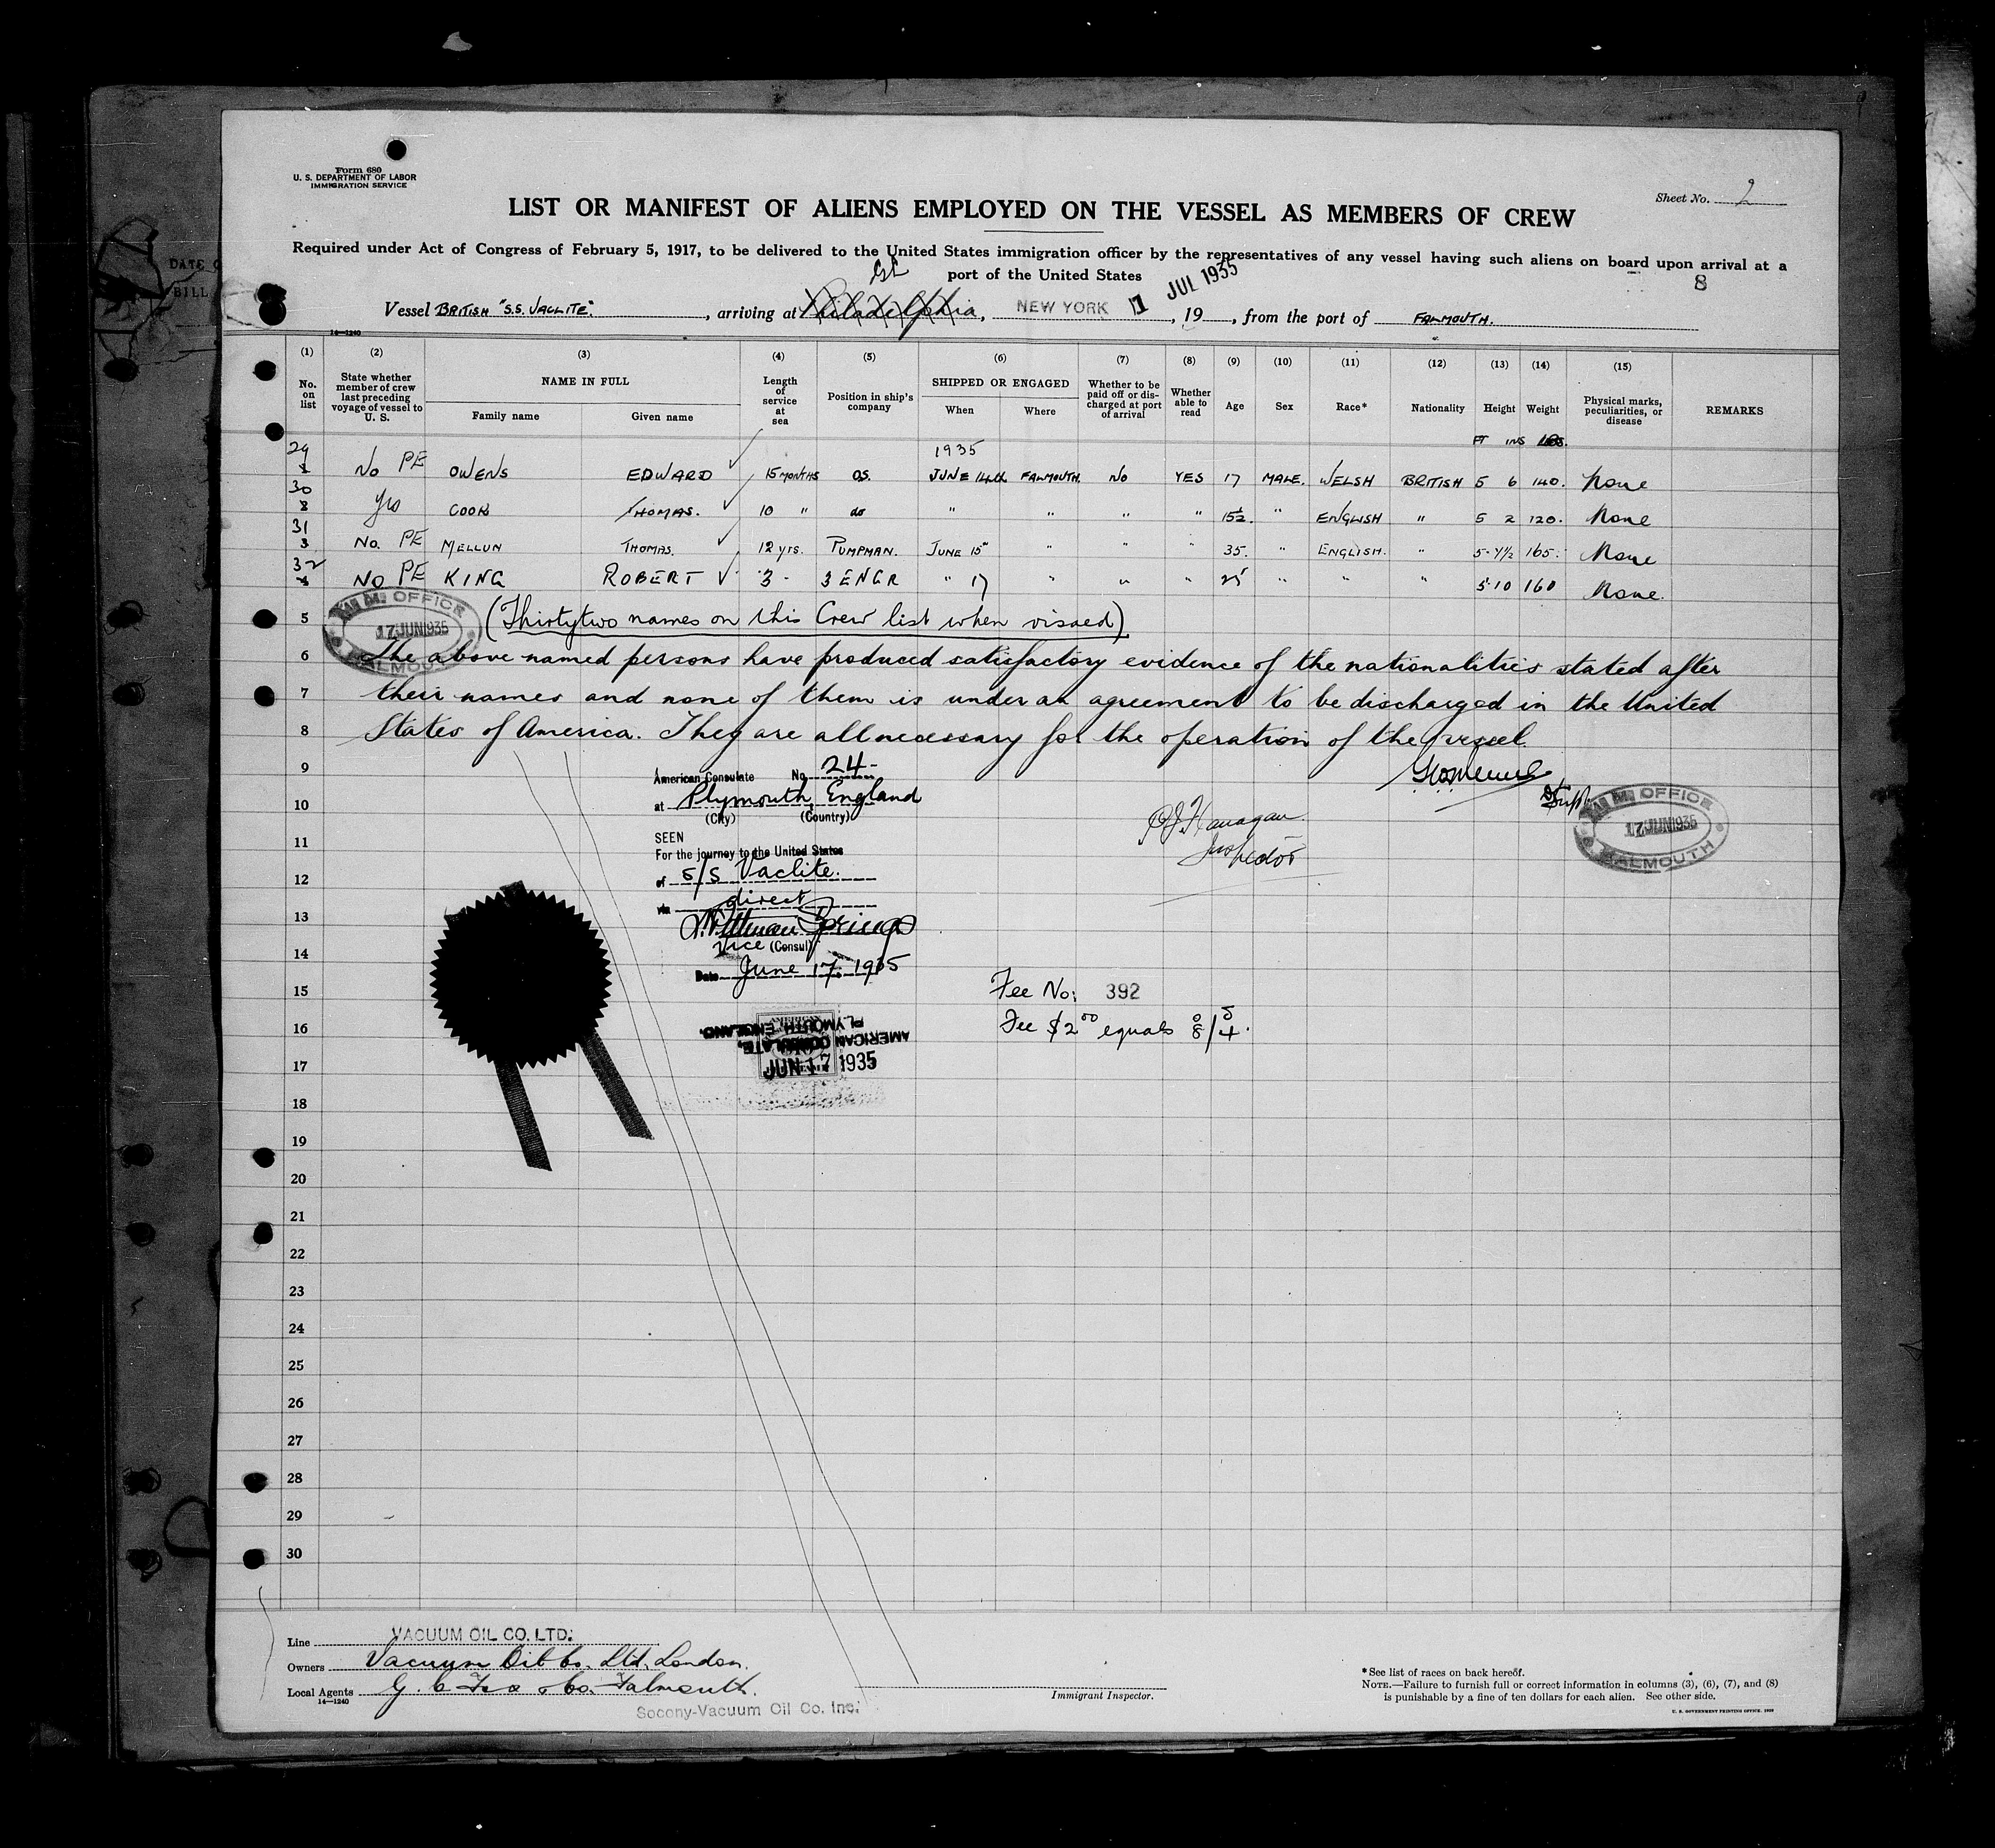 DATE O
BILL
Form 680
U. S. DEPARTMENT OF LABOR
IMMIGRATION SERVICE
Sheet No. 2
LIST OR MANIFEST OF ALIENS EMPLOYED ON THE VESSEL AS MEMBERS OF CREW
Required under Act of Congress of February 5, 1917, to be delivered to the United States immigration officer by the representatives of any vessel having such aliens on board upon arrival at a
port of the United States
8
Vessel BRITISH "S.S. VACLITE". , arriving at Philadelphia, NEW YORK 1 JUL 1935, 19 , from the port of FALMOUTH.
14—1240
(1) (2) (3) (4) (5) (6) (7) (8) (9) (10) (11) (12) (13) (14) (15)
No. on list State whether member of crew last preceding voyage of vessel to U. S. NAME IN FULL Family name Given name Length of service at sea Position in ship's company SHIPPED OR ENGAGED When Where Whether to be paid off or discharged at port of arrival Whether able to read Age Sex Race* Nationality Height Weight Physical marks, peculiarities, or disease REMARKS
1935 FT INS LBS.
29 1 No PE OWENS EDWARD ✓ 15 MONTHS O.S. JUNE 14th FALMOUTH. No YES 17 MALE. WELSH BRITISH 5 6 140. None
30 2 Yes COOK THOMAS. ✓ 10 " do " " " " 15½. " ENGLISH " 5 2 120. None
31 3 No. PE MELLUN THOMAS. ✓ 12 yrs. PUMPMAN. JUNE 15" " " " 35. " ENGLISH. " 5·7½ 165. None
32 4 No PE KING ROBERT ✓ 3 " 3 ENGR " 17 " " " 25 " " " 5·10 160 None.
5 (Thirtytwo names on this Crew list when visaed)
IMM. OFFICE
17 JUN 1935
FALMOUTH
6 The above named persons have produced satisfactory evidence of the nationalities stated after
7 their names and none of them is under an agreement to be discharged in the United
8 States of America. They are all necessary for the operation of the vessel.
9
American Consulate No. 24-
at Plymouth, England
(City) (Country)
10
SEEN
11
For the journey to the United States
of S/S Vaclite.
12
via direct
13
Vice (Consul)
14
Date June 17, 1935
Inspector
IMM. OFFICE
17 JUN 1935
FALMOUTH
15
Fee No: 392
16
Fee $2.00 equals 8/4.
AMERICAN CONSULATE,
PLYMOUTH, ENGLAND.
JUN 17 1935
17
18
19
20
21
22
23
24
25
26
27
28
29
30
Line VACUUM OIL CO. LTD.
Owners Vacuum Oil Co. Ltd. London.
Local Agents G. C. Fox & Co. Falmouth.
14—1240
Socony-Vacuum Oil Co. Inc.
Immigrant Inspector.
*See list of races on back hereof.
NOTE.—Failure to furnish full or correct information in columns (3), (6), (7), and (8)
is punishable by a fine of ten dollars for each alien. See other side.
U. S. GOVERNMENT PRINTING OFFICE